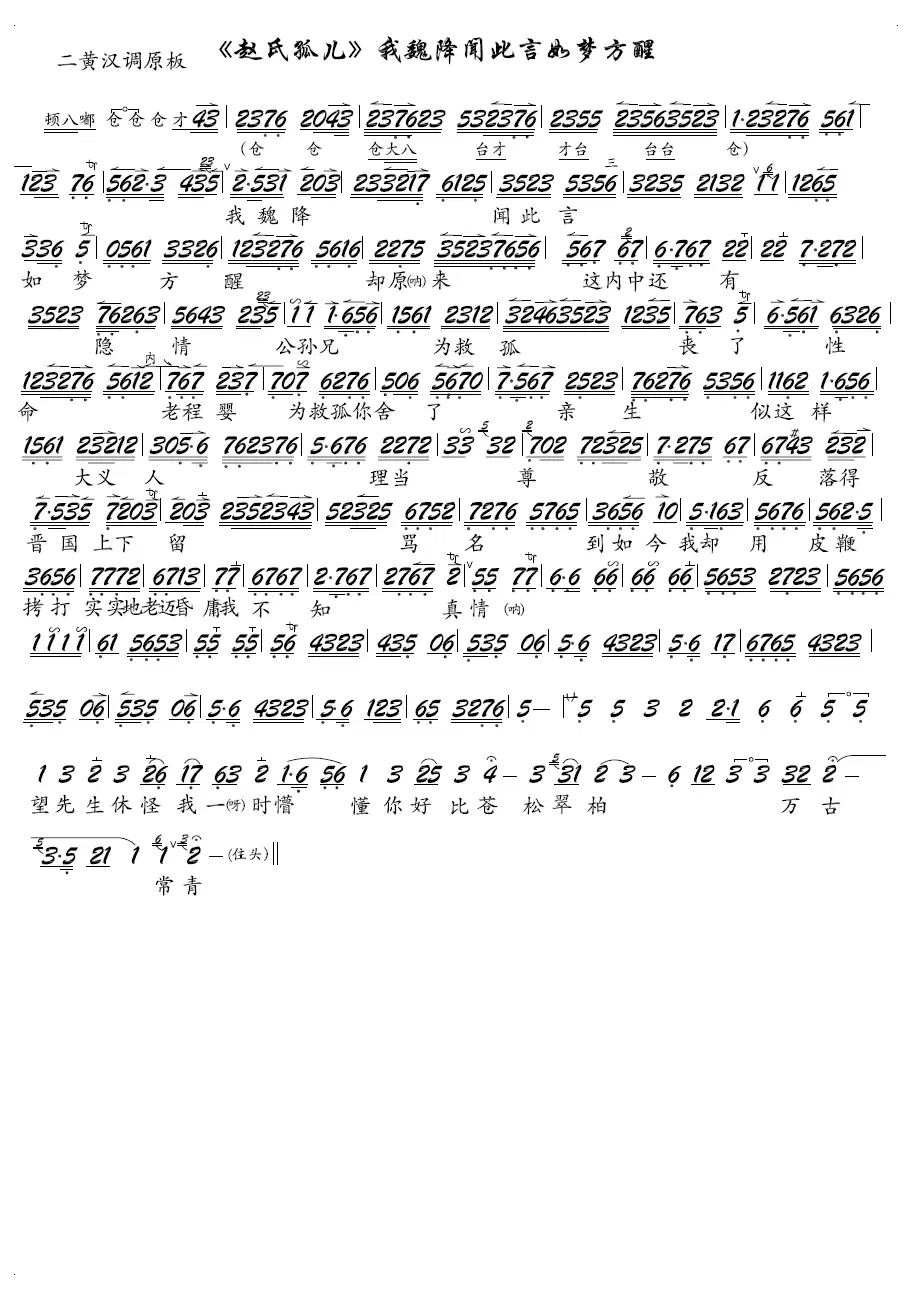 《赵氏孤儿》我魏降闻此言如梦方醒
二黄汉调原板
顿八嘟 仓 仓 仓 才 43 | 2376 2043 | 237623 532376 | 2355 23563523 | 1·23276 561 |
(仓 仓 仓大八 台才 才台 台台 仓)
123 76 | 562·3 435 | 2·531 203 | 233217 6125 | 3523 5356 | 3235 2132 | 11 | 1265
我 魏 降 闻 此 言
336 5 | 0561 3326 | 123276 5616 | 2275 35237656 | 567 67 | 6·767 22 | 22 7·272 |
如 梦 方 醒 却原(呐)来 这内中还 有
3523 76263 | 5643 235 | 11 1·656 | 1561 2312 | 32463523 1235 | 763 5 | 6·561 6326 |
隐 情 公孙兄 为救 孤 丧 了 性
内
123276 5612 | 767 237 | 707 6276 | 506 5670 | 7·567 2523 | 76276 5356 | 1162 1·656 |
命 老程 婴 为救孤你舍 了 亲 生 似这 样
1561 23212 | 305·6 762376 | 5·676 2272 | 33 32 | 702 72325 | 7·275 67 | 6743 232 |
大义 人 理当 尊 敬 反 落得
7·535 7203 | 203 2352343 | 52325 6752 | 7276 5765 | 3656 10 | 5·163 | 5676 | 562·5 |
晋 国 上下 留 骂 名 到如 今 我却 用 皮鞭
3656 | 7772 | 6713 | 77 | 6767 | 2·767 | 2767 2 | 55 77 | 6·6 66 | 66 66 | 5653 2723 | 5656
拷打 实实地老迈昏 庸我 不 知 真情(呐)
1111 | 61 5653 | 55 55 | 56 4323 | 435 06 | 535 06 | 5·6 4323 | 5·6 17 | 6765 4323 |
535 06 | 535 06 | 5·6 4323 | 5·6 123 | 65 3276 | 5— | 5 5 3 2 2·1 6 6 5 5
1 3 2 3 26 17 63 2 1·6 56 1 3 25 3 4— 3 31 2 3— 6 12 3 3 32 2—
望先生休怪 我一(呀)时懵 懂你好 比苍 松翠柏 万 古
3·5 21 1 1 2 —(住头)‖
常 青